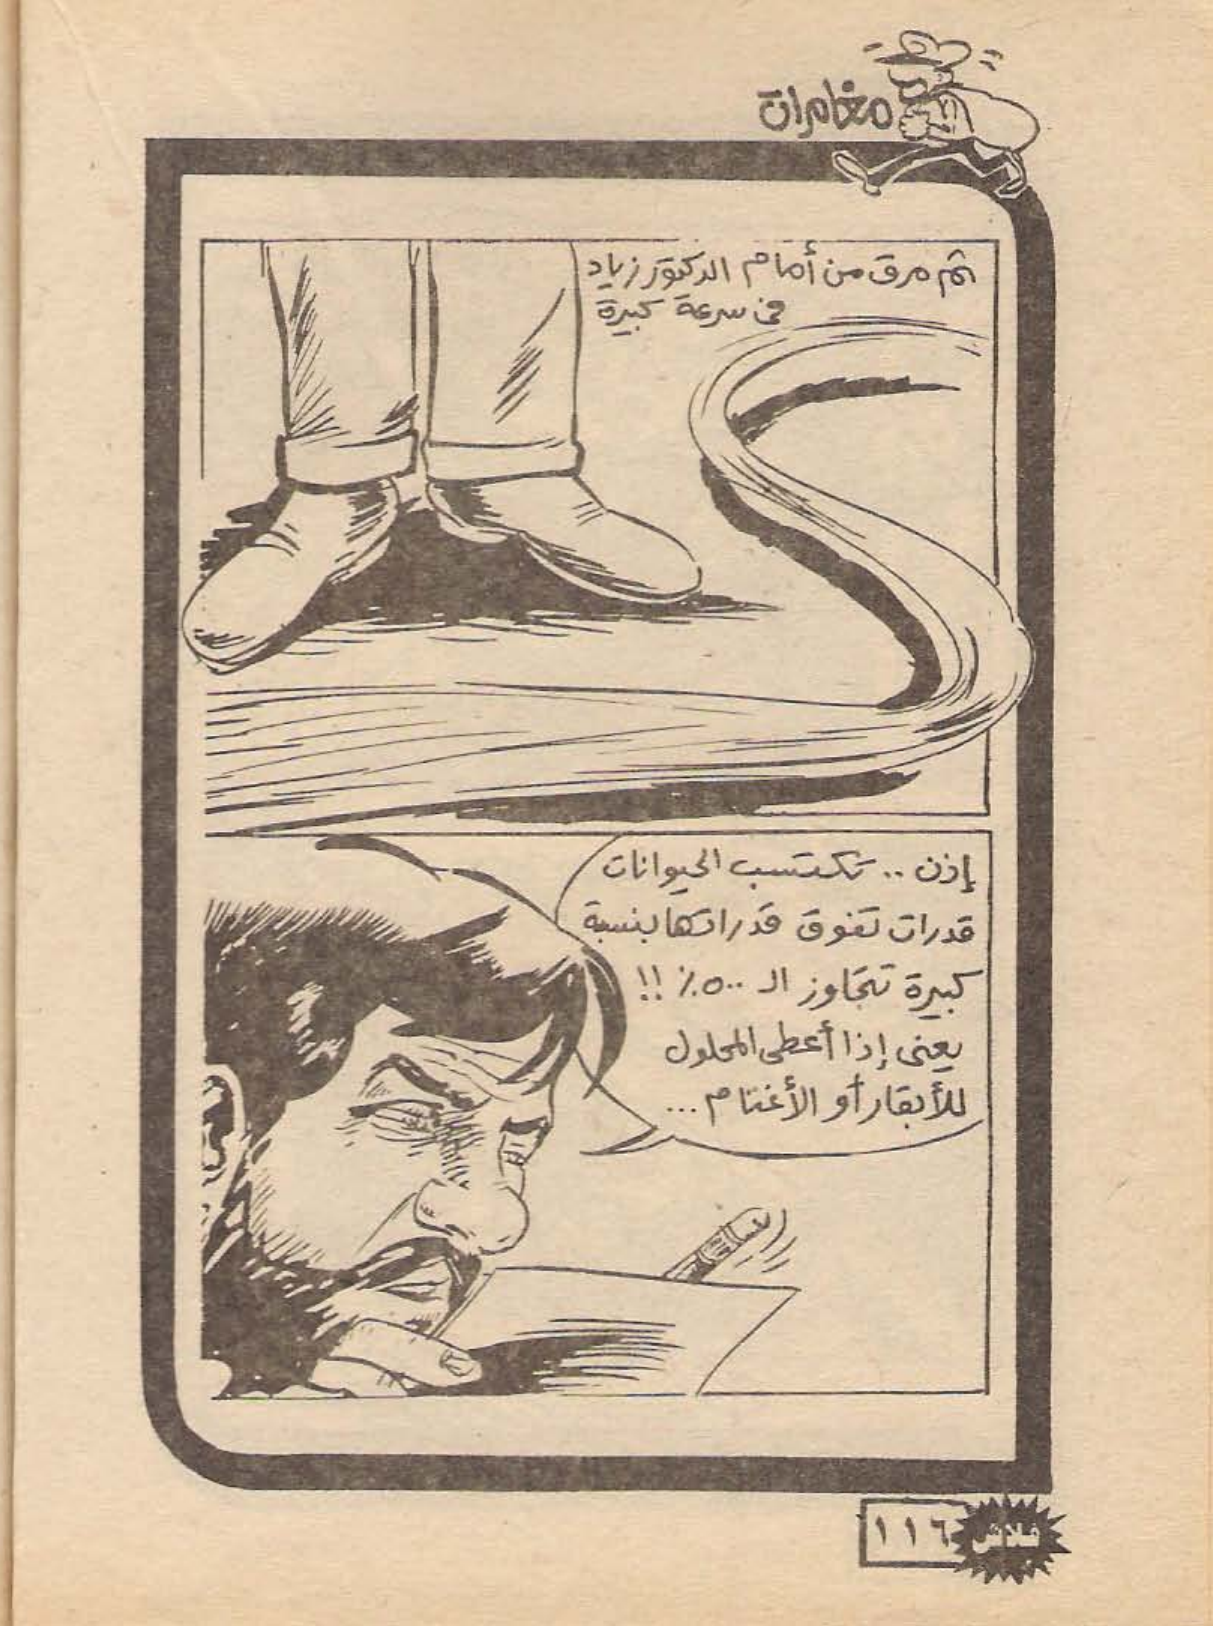 مغامرات
ثم مرق من أمام الدكتور زياد
فى سرعة كبيرة
إذن .. تكتسب الحيوانات
قدرات تفوق قدراتها بنسبة
كبيرة تتجاوز الـ ٥٠٠٪ !!
يعنى إذا أعطى المحلول
للأبقار أو الأغنام ...
١١٦ فلاش